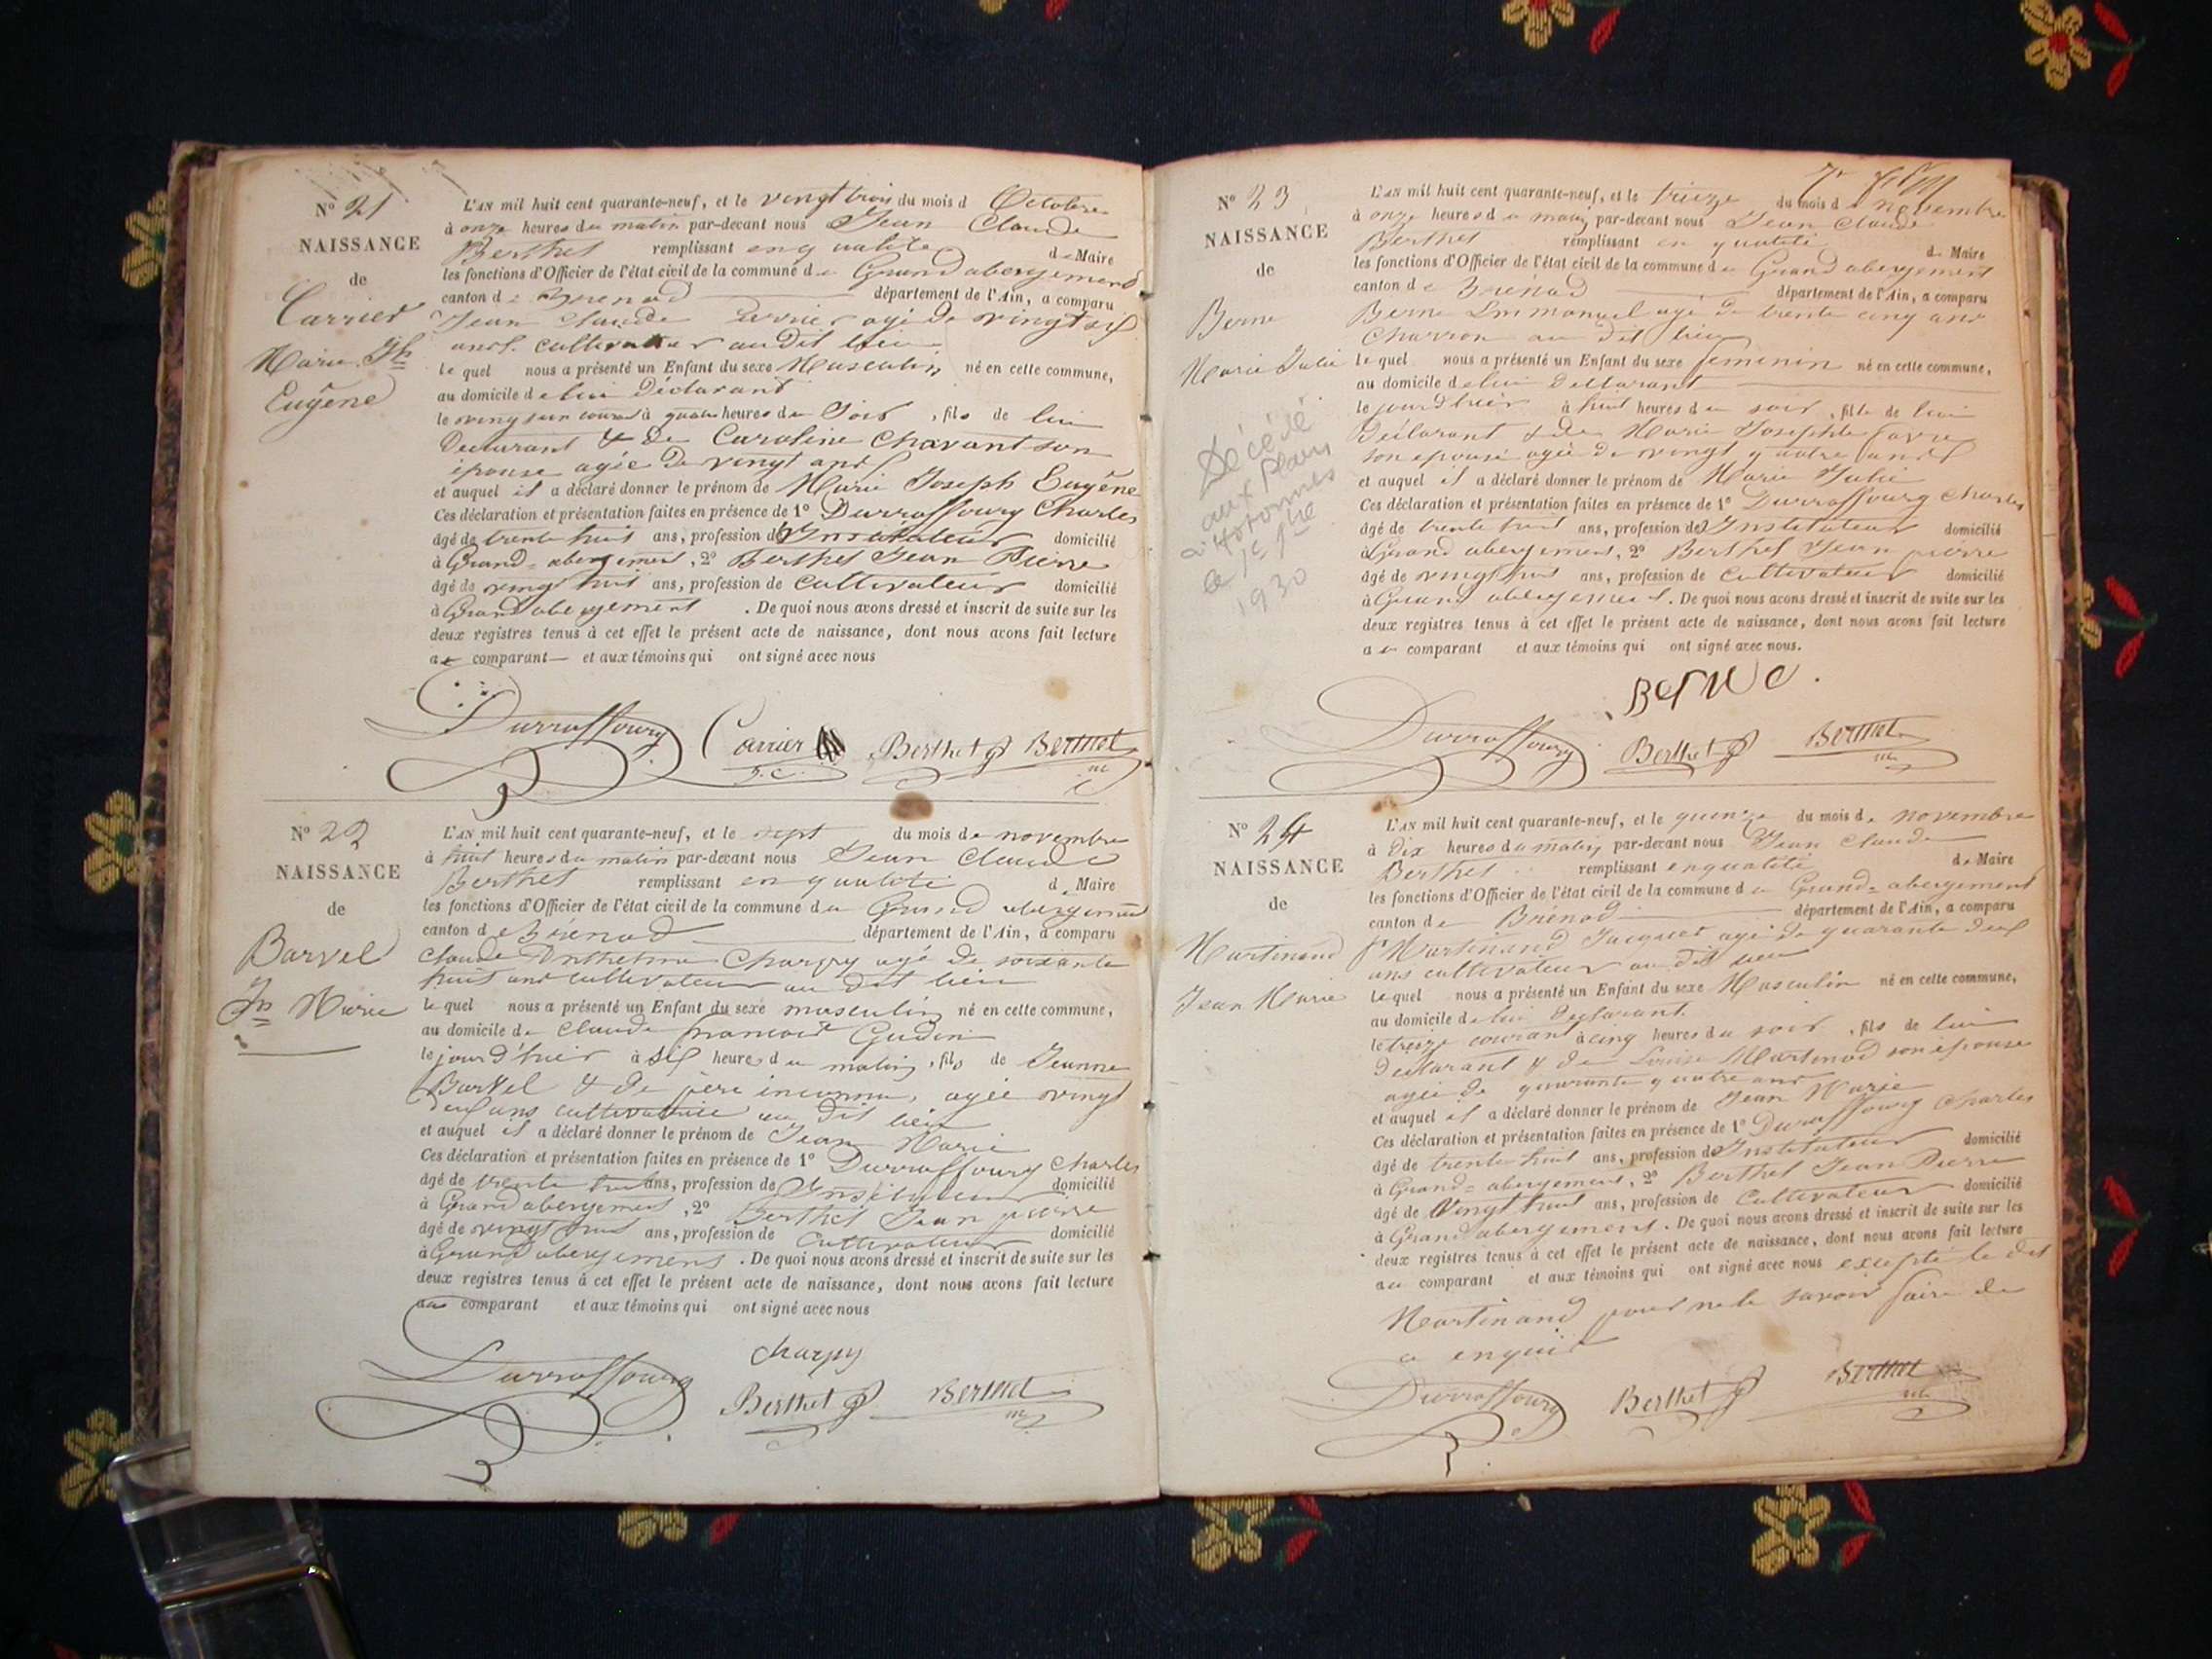 N° 21
NAISSANCE
de
Carrier
Marie Jh
Eugêne
L'AN mil huit cent quarante-neuf, et le vingt trois du mois d Octobre
à onze heures du matin par-devant nous Jean Claude
Berthet remplissant en qualité de Maire
les fonctions d'Officier de l'état civil de la commune de Grand abergement
canton de Brenod département de l'Ain, a comparu
Jean Claude Carrier agé de vingt six
ans cultivateur au dit lieu
le quel nous a présenté un Enfant du sexe Masculin né en cette commune,
au domicile de lui Déclarant
le vingt un courant à quatre heures du Soir, fils de lui
Declarant & de Caroline Chavant son
épouse agée de vingt ans
et auquel il a déclaré donner le prénom de Marie Joseph Eugêne
Ces déclaration et présentation faites en présence de 1° Durraffourg Charles
âgé de trente huit ans, profession d'Instituteur domicilié
à Grand=abergement, 2° Berthet Jean Pierre
âgé de vingt huit ans, profession de cultivateur domicilié
à Grand abergement. De quoi nous avons dressé et inscrit de suite sur les
deux registres tenus à cet effet le présent acte de naissance, dont nous avons fait lecture
au comparant et aux témoins qui ont signé avec nous
Durraffourg Carrier Berthet Berthet
J. C. m
N° 22
NAISSANCE
de
Barvel
Jn Marie
L'AN mil huit cent quarante-neuf, et le sept du mois de novembre
à huit heures du matin par-devant nous Jean Claude
Berthet remplissant en qualité d Maire
les fonctions d'Officier de l'état civil de la commune du Grand abergement
canton de Brenod département de l'Ain, a comparu
Claude Anthelme Charpy agé de soixante
huit ans cultivateur au dit lieu
le quel nous a présenté un Enfant du sexe masculin né en cette commune,
au domicile de Claude francois Gudin
le jour d'hier à six heures du matin, fils de Jeanne
Barvel & de père inconnu, agée vingt
ans cultivatrice au dit lieu
et auquel il a déclaré donner le prénom de Jean Marie
Ces déclaration et présentation faites en présence de 1° Durraffourg Charles
âgé de trente huit ans, profession d'Instituteur domicilié
à Grand abergement, 2° Berthet Jean pierre
âgé de vingt huit ans, profession de Cultivateur domicilié
à Grand abergement. De quoi nous avons dressé et inscrit de suite sur les
deux registres tenus à cet effet le présent acte de naissance, dont nous avons fait lecture
au comparant et aux témoins qui ont signé avec nous
Charpy
Durraffourg Berthet Berthet
m
N° 23
NAISSANCE
de
Berne
Marie Julie
Décédé
aux plans
d'Hotonnes
le
1930
L'AN mil huit cent quarante-neuf, et le treize du mois de novembre
à onze heures du matin par-devant nous Jean Claude
Berthet remplissant en qualité de Maire
les fonctions d'Officier de l'état civil de la commune du Grand abergement
canton de Brénod département de l'Ain, a comparu
Berne Emmanuel agé de trente cinq ans
Charron au dit lieu
le quel nous a présenté un Enfant du sexe feminin né en cette commune,
au domicile de lui Déclarant
le jour d'hier à huit heures du soir, fille de lui
Déclarant & de Marie Josephte favre
son epouse agée de vingt quatre ans
et auquel il a déclaré donner le prénom de Marie Julie
Ces déclaration et présentation faites en présence de 1° Durraffourg Charles
âgé de trente huit ans, profession d'Instituteur domicilié
à Grand abergement, 2° Berthet Jean pierre
âgé de vingt huit ans, profession de Cultivateur domicilié
à Grand abergement. De quoi nous avons dressé et inscrit de suite sur les
deux registres tenus à cet effet le présent acte de naissance, dont nous avons fait lecture
au comparant et aux témoins qui ont signé avec nous.
Berne
Durraffourg Berthet Berthet
m
N° 24
NAISSANCE
de
Martinand
Jean Marie
L'AN mil huit cent quarante-neuf, et le quinze du mois de novembre
à Dix heures du matin par-devant nous Jean Claude
Berthet remplissant en qualité de Maire
les fonctions d'Officier de l'état civil de la commune du Grand=abergement
canton de Brenod département de l'Ain, a comparu
Martinand Jacques agé de quarante deux
ans cultivateur au dit lieu
Lequel nous a présenté un Enfant du sexe Masculin né en cette commune,
au domicile de lui Declarant
le treize courant à cinq heures du soir, fils de lui
declarant & de Louise Martinod son épouse
agée de quarante quatre ans
et auquel il a déclaré donner le prénom de Jean Marie
Ces déclaration et présentation faites en présence de 1° Durraffourg Charles
âgé de trente huit ans, profession d'Instituteur domicilié
à Grand=abergement, 2° Berthet Jean Pierre
âgé de Vingt huit ans, profession de Cultivateur domicilié
à Grand abergement. De quoi nous avons dressé et inscrit de suite sur les
deux registres tenus à cet effet le présent acte de naissance, dont nous avons fait lecture
au comparant et aux témoins qui ont signé avec nous excepté le dit
Martinand pour ne le savoir faire de
ce enquis
Durraffourg Berthet Berthet
m